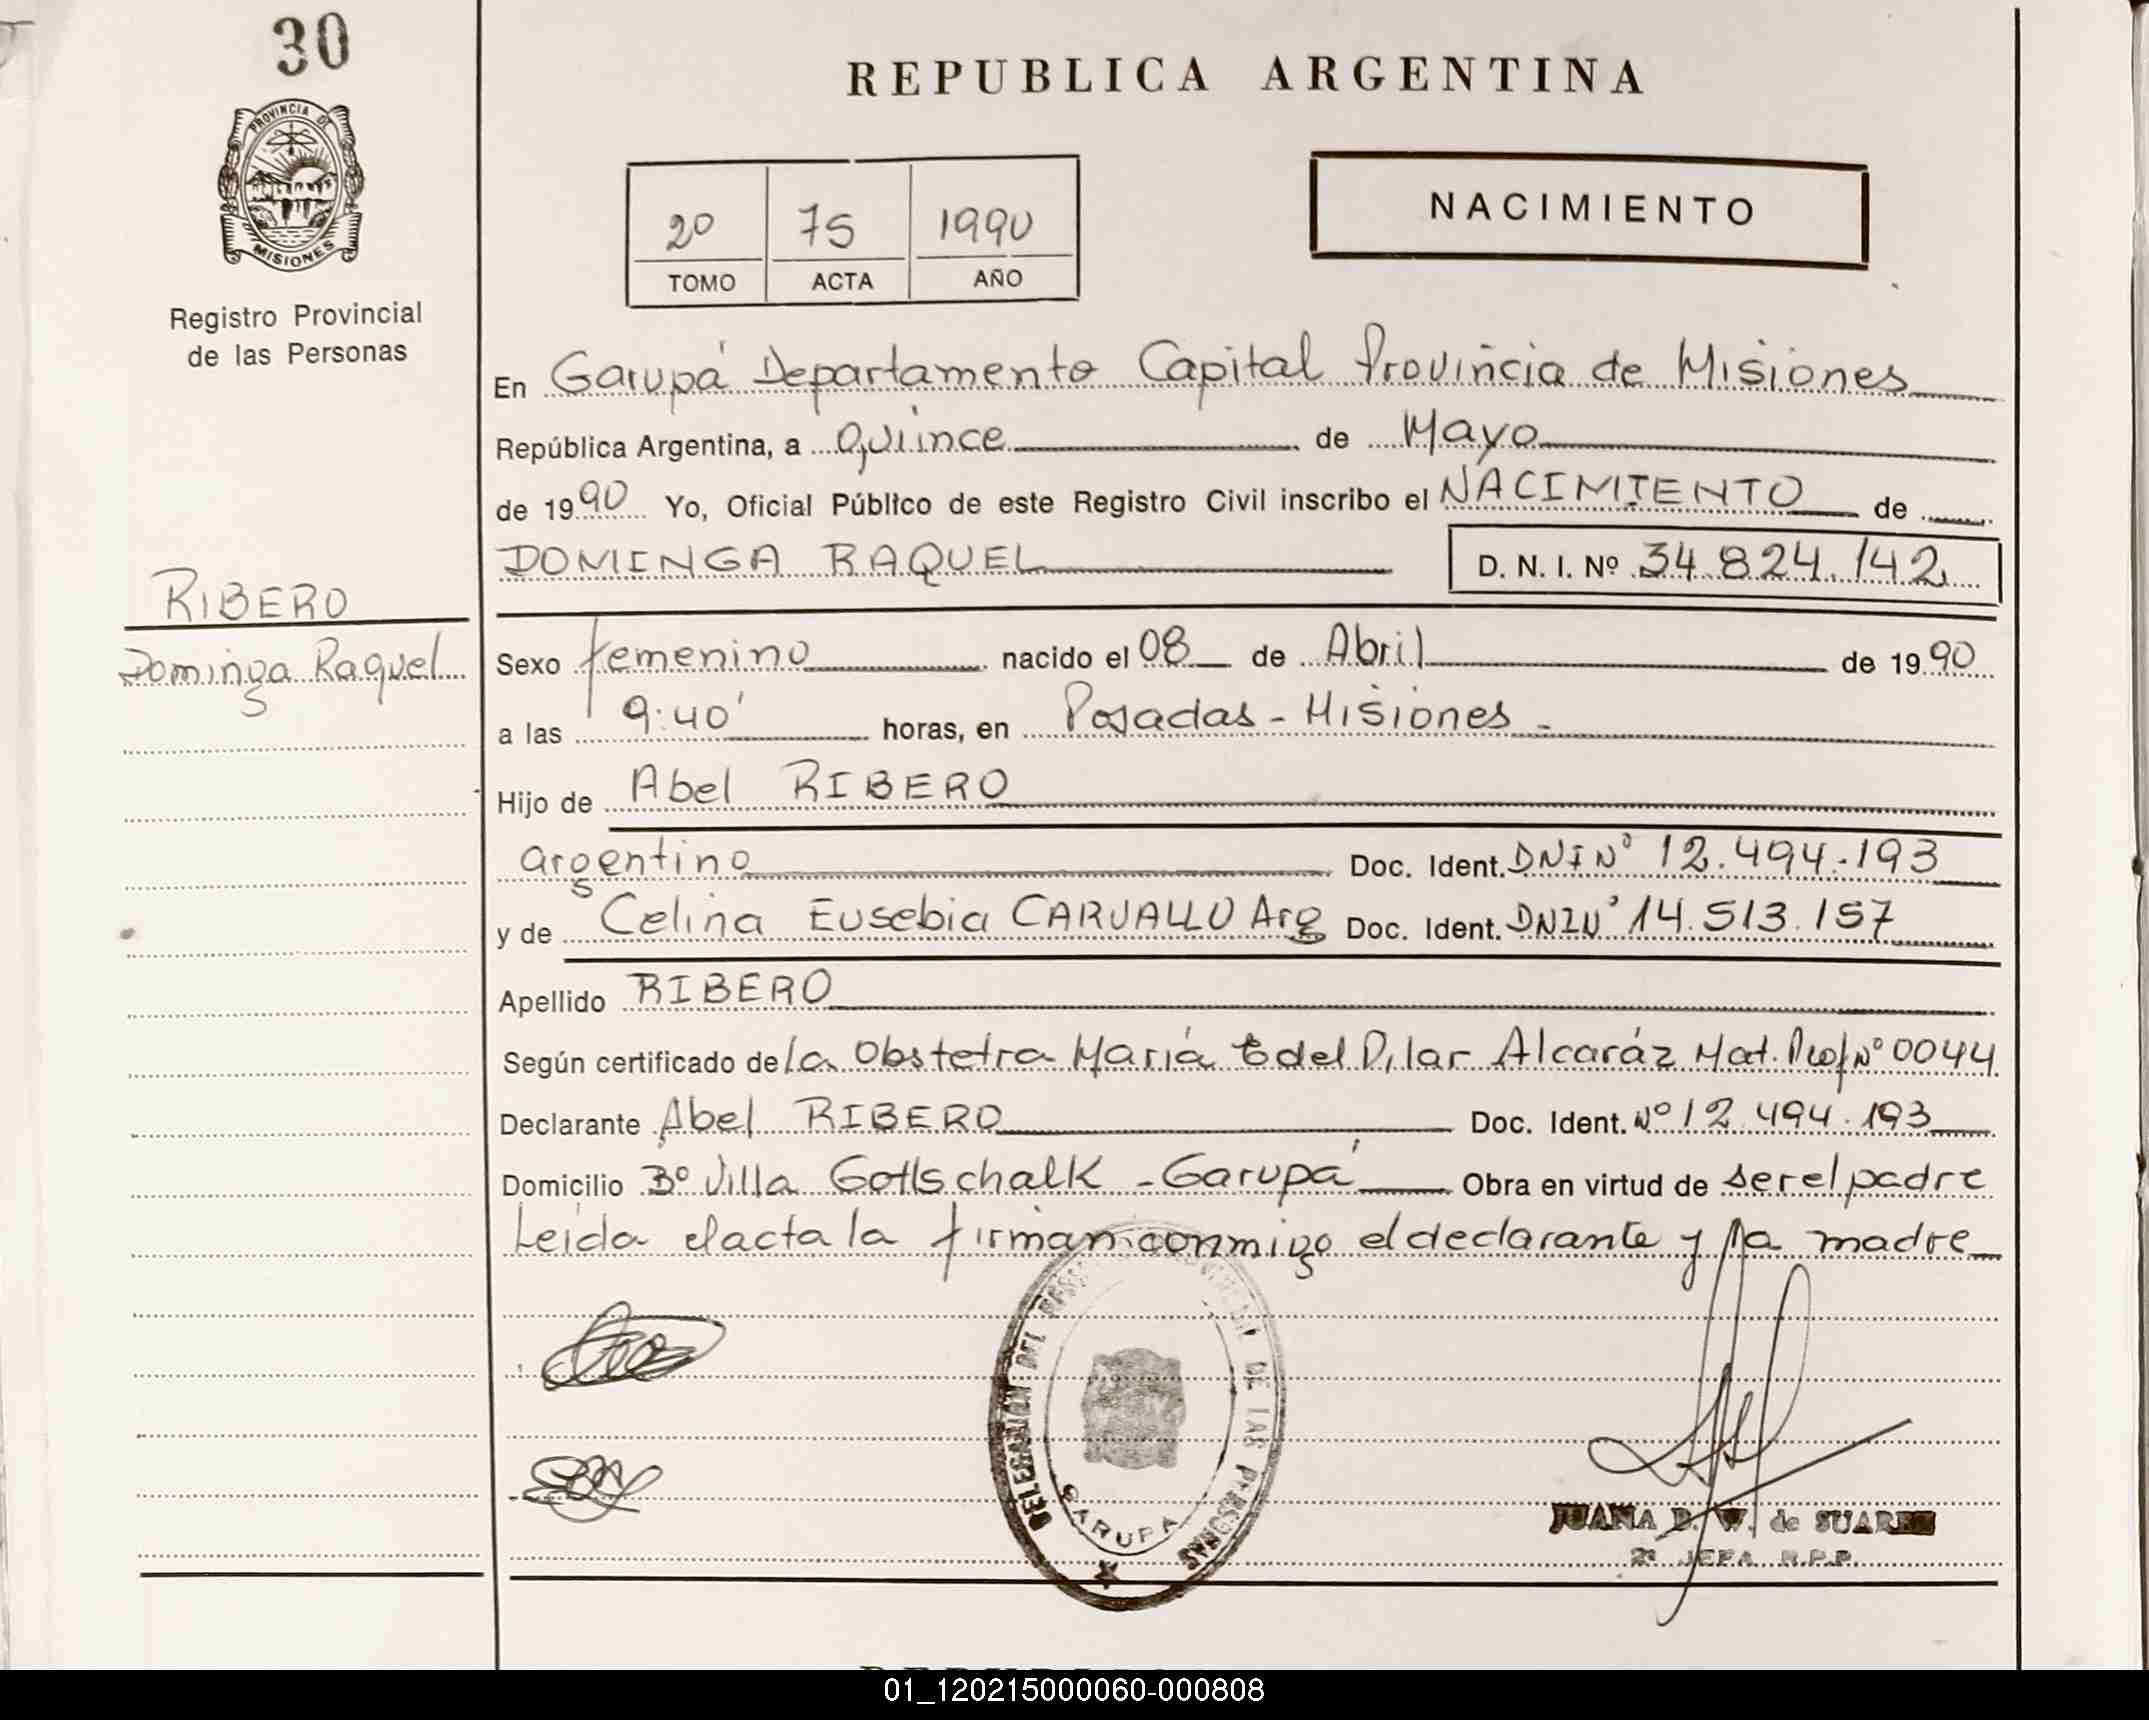 30
REPUBLICA ARGENTINA
PROVINCIA DE
MISIONES
Registro Provincial
de las Personas
2º 75 1990
TOMO ACTA AÑO
NACIMIENTO
En Garupá Departamento Capital Provincia de Misiones
República Argentina, a Quince de Mayo
de 1990 Yo, Oficial Público de este Registro Civil inscribo el NACIMIENTO de
DOMINGA RAQUEL D. N. I. Nº 34.824.142
RIBERO
Dominga Raquel
Sexo femenino nacido el 08 de Abril de 1990
a las 9:40' horas, en Posadas - Misiones -
Hijo de Abel RIBERO
argentino Doc. Ident. DNI Nº 12.494.193
y de Celina Eusebia CARVALLO Arg Doc. Ident. DNI Nº 14.513.157
Apellido RIBERO
Según certificado de la Obstetra María del Pilar Alcaráz Mat. Prof Nº 0044
Declarante Abel RIBERO Doc. Ident. Nº 12.494.193
Domicilio Bº Villa Gottschalk - Garupá Obra en virtud de ser el padre
Leida el acta la firman conmigo el declarante y la madre
DELEGACION DEL REGISTRO PROVINCIAL DE LAS PERSONAS
GARUPA
JUANA B. W. de SUAREZ
2ª JEFA R.P.P.
01_120215000060-000808